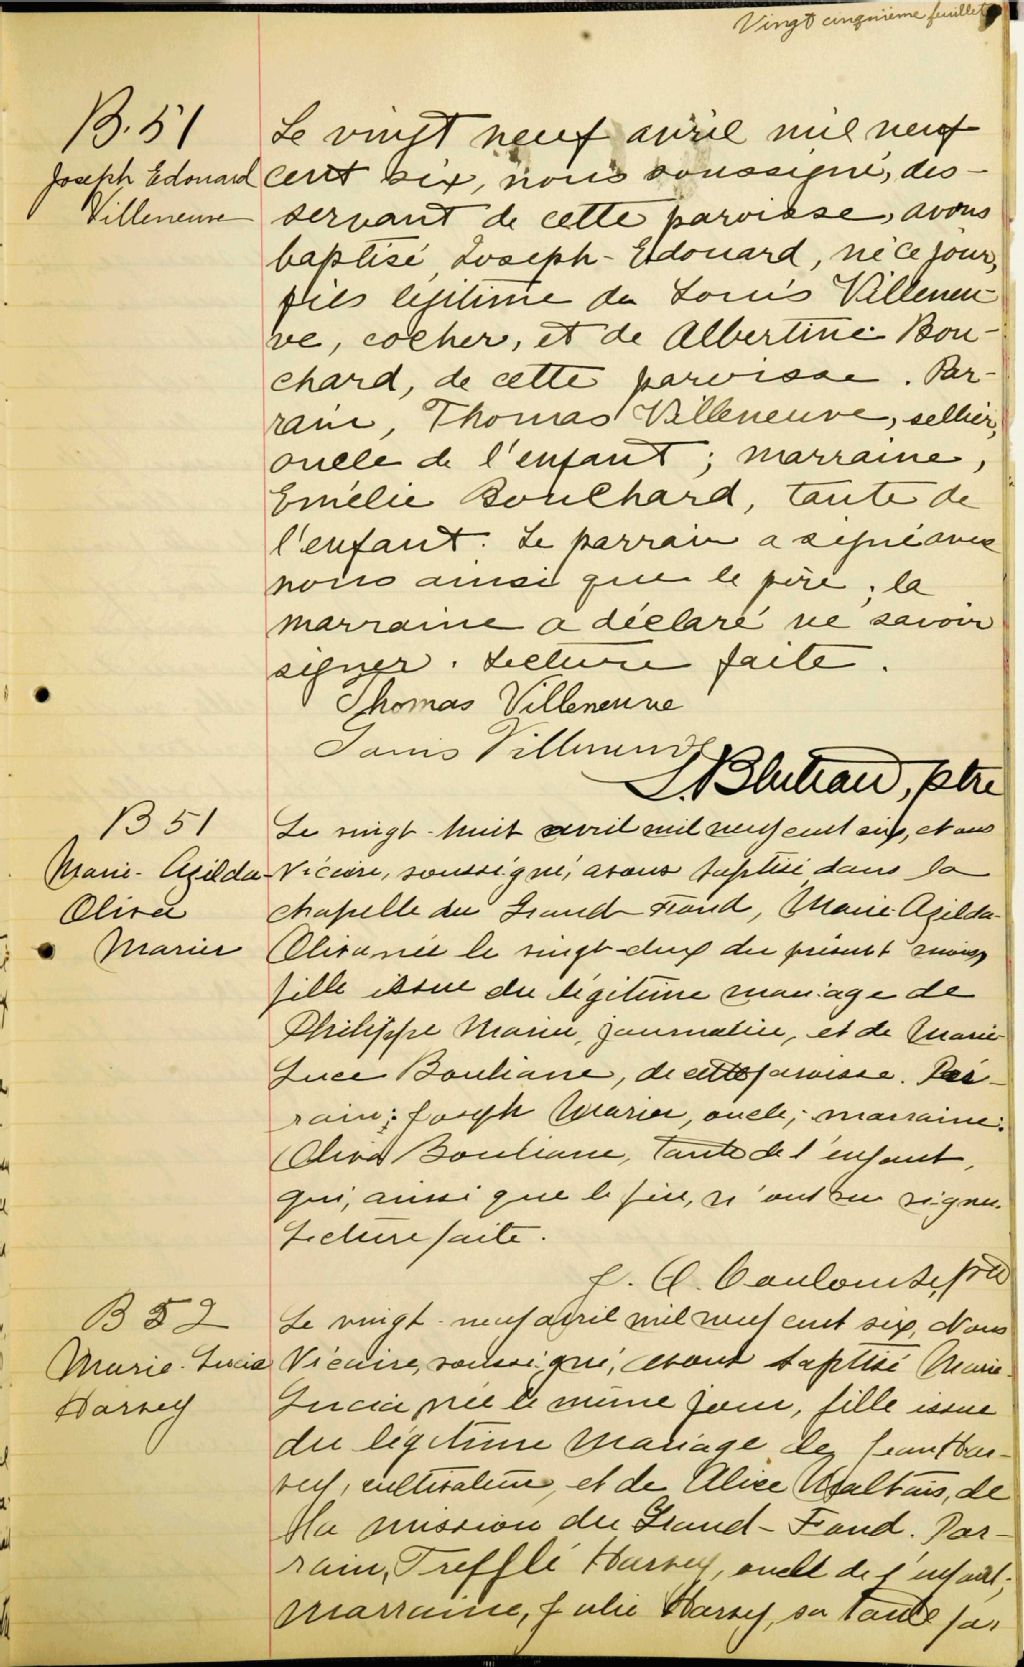 Vingt cinquième feuillet
B. 51
Joseph Edouard
Villeneuve
Le vingt neuf avril mil neuf
cent six, nous soussigné, des-
servant de cette paroisse, avons
baptisé, Joseph-Edouard, né ce jour,
fils légitime de Louis Villeneu-
ve, cocher, et de Albertine Bou-
chard, de cette paroisse. Par-
rain, Thomas Villeneuve, sellier,
oncle de l'enfant; marraine,
Emélie Bouchard, tante de
l'enfant. Le parrain a signé avec
nous ainsi que le père; la
marraine a déclaré ne savoir
signer. Lecture faite.
Thomas Villeneuve
Louis Villeneuve
ptre
B 51
Marie-Azilda-
Oliva
Marier
Le vingt-huit avril mil neuf cent six, Nous
Vicaire, soussigné, avons baptisé, dans la
chapelle du Grand-Fond, Marie-Azilda-
Oliva née le vingt-deux du présent mois,
fille issue du légitime mariage de
Philippe Marier, journalier, et de Marie-
Luce Bouliane, de cette paroisse. Par-
rain: Joseph Marier, oncle; marraine:
Oliva Bouliane, tante de l'enfant,
qui, ainsi que le père, n'ont su signer.
Lecture faite.
J. A. Coulombe, ptre
B 52
Marie-Lucia
Harvey
Le vingt-neuf avril mil neuf cent six, Nous
Vicaire, soussigné, avons baptisé Marie-
Lucia, née le même jour, fille issue
du légitime mariage de Jean Har-
vey, cultivateur, et de Alice Maltais, de
la mission du Grand-Fond. Par-
rain, Trefflé Harvey, oncle de l'enfant;
marraine, Julie Harvey, sa tante par